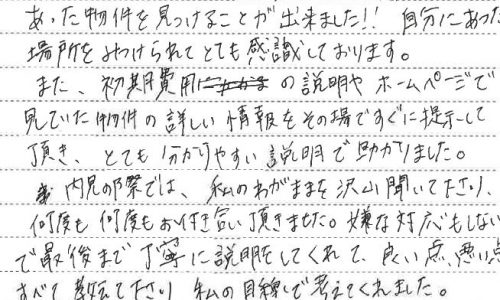 あった物件を見つけることが出来ました!! 自分にあった
場所をみつけられてとても感識しております。
また、初期費用の説明や ホームページで
見ていた物件の詳しい情報をその場ですぐに提示して
頂き、とても分かりやすい説明で助かりました。
内見の際では、私のわがままを沢山聞いて下さり、
何度も何度もお付き合い頂きました。嫌な対応もしない
で最後まで丁寧に説明をしてくれて、良い点、悪い点
すべて教えて下さり 私の目線で考えてくれました。